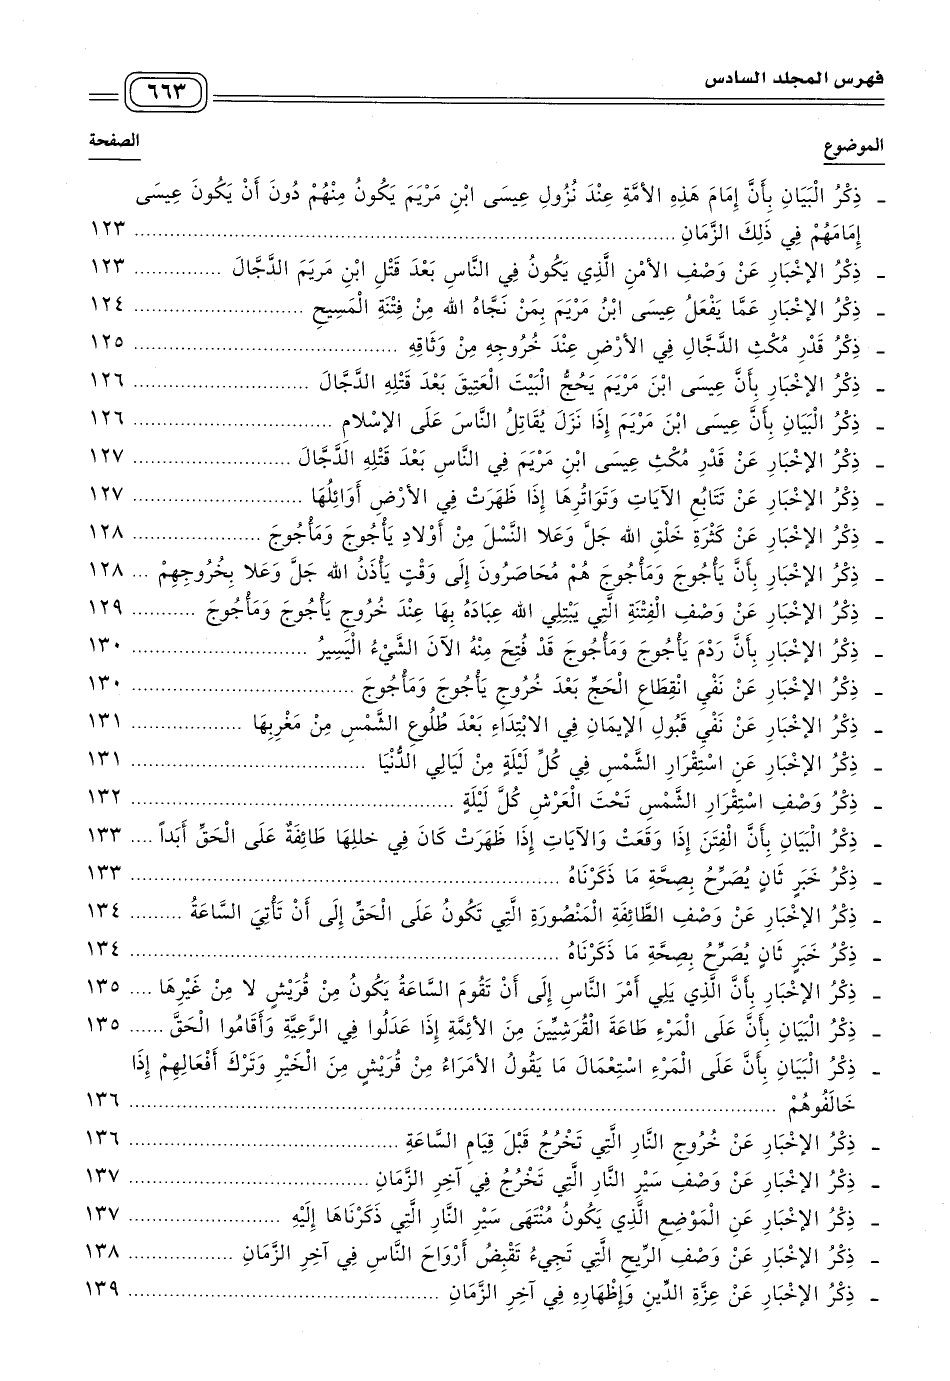 فهرس المجلد السادس
٦٦٣
الموضوع الصفحة
- ذِكْرُ الْبَيَانِ بِأَنَّ إِمَامَ هَذِهِ الأمَّةِ عِنْدَ نُزُولِ عِيسَى ابْنِ مَرْيَمَ يَكُونُ مِنْهُمْ دُونَ أَنْ يَكُونَ عِيسَى
إِمَامَهُمْ فِي ذَلِكَ الزَّمَانِ ........ ١٢٣
- ذِكْرُ الإخْبَارِ عَنْ وَصْفِ الأمْنِ الَّذِي يَكُونُ فِي النَّاسِ بَعْدَ قَتْلِ ابْنِ مَرْيَمَ الدَّجَّالَ ........ ١٢٣
- ذِكْرُ الإخْبَارِ عَمَّا يَفْعَلُ عِيسَى ابْنُ مَرْيَمَ بِمَنْ نَجَّاهُ الله مِنْ فِتْنَةِ الْمَسِيحِ ........ ١٢٤
- ذِكْرُ قَدْرِ مُكْثِ الدَّجَّالِ فِي الأرْضِ عِنْدَ خُرُوجِهِ مِنْ وَثَاقِهِ ........ ١٢٥
- ذِكْرُ الإخْبَارِ بِأَنَّ عِيسَى ابْنَ مَرْيَمَ يَحُجُّ الْبَيْتَ الْعَتِيقَ بَعْدَ قَتْلِهِ الدَّجَّالَ ........ ١٢٦
- ذِكْرُ الْبَيَانِ بِأَنَّ عِيسَى ابْنَ مَرْيَمَ إِذَا نَزَلَ يُقَاتِلُ النَّاسَ عَلَى الإسْلامِ ........ ١٢٦
- ذِكْرُ الإخْبَارِ عَنْ قَدْرِ مُكْثِ عِيسَى ابْنِ مَرْيَمَ فِي النَّاسِ بَعْدَ قَتْلِهِ الدَّجَّالَ ........ ١٢٧
- ذِكْرُ الإخْبَارِ عَنْ تَتَابُعِ الآيَاتِ وَتَوَاتُرِهَا إِذَا ظَهَرَتْ فِي الأرْضِ أَوَائِلُهَا ........ ١٢٧
- ذِكْرُ الإخْبَارِ عَنْ كَثْرَةِ خَلْقِ الله جَلَّ وَعَلا النَّسْلَ مِنْ أَوْلادِ يَأْجُوجَ وَمَأْجُوجَ ........ ١٢٨
- ذِكْرُ الإخْبَارِ بِأَنَّ يَأْجُوجَ وَمَأْجُوجَ هُمْ مُحَاصَرُونَ إِلَى وَقْتِ يَأْذَنُ الله جَلَّ وَعَلا بِخُرُوجِهِمْ ... ١٢٨
- ذِكْرُ الإخْبَارِ عَنْ وَصْفِ الْفِتْنَةِ الَّتِي يَبْتَلِي الله عِبَادَهُ بِهَا عِنْدَ خُرُوجِ يَأْجُوجَ وَمَأْجُوجَ ........ ١٢٩
- ذِكْرُ الإخْبَارِ بِأَنَّ رَدْمَ يَأْجُوجَ وَمَأْجُوجَ قَدْ فُتِحَ مِنْهُ الآنَ الشَّيْءُ الْيَسِيرُ ........ ١٣٠
- ذِكْرُ الإخْبَارِ عَنْ نَفْيِ انْقِطَاعِ الْحَجِّ بَعْدَ خُرُوجِ يَأْجُوجَ وَمَأْجُوجَ ........ ١٣٠
- ذِكْرُ الإخْبَارِ عَنْ نَفْيِ قَبُولِ الإيمَانِ فِي الابْتِدَاءِ بَعْدَ طُلُوعِ الشَّمْسِ مِنْ مَغْرِبِهَا ........ ١٣١
- ذِكْرُ الإخْبَارِ عَنِ اسْتِقْرَارِ الشَّمْسِ فِي كُلِّ لَيْلَةٍ مِنْ لَيَالِي الدُّنْيَا ........ ١٣١
- ذِكْرُ وَصْفِ اسْتِقْرَارِ الشَّمْسِ تَحْتَ الْعَرْشِ كُلَّ لَيْلَةٍ ........ ١٣٢
- ذِكْرُ الْبَيَانِ بِأَنَّ الْفِتَنَ إِذَا وَقَعَتْ وَالآيَاتِ إِذَا ظَهَرَتْ كَانَ فِي خللِهَا طَائِفَةٌ عَلَى الْحَقِّ أَبَداً .... ١٣٣
- ذِكْرُ خَبَرٍ ثَانٍ يُصَرِّحُ بِصِحَّةِ مَا ذَكَرْنَاهُ ........ ١٣٣
- ذِكْرُ الإخْبَارِ عَنْ وَصْفِ الطَّائِفَةِ الْمَنْصُورَةِ الَّتِي تَكُونُ عَلَى الْحَقِّ إِلَى أَنْ تَأْتِيَ السَّاعَةُ ........ ١٣٤
- ذِكْرُ خَبَرٍ ثَانٍ يُصَرِّحُ بِصِحَّةِ مَا ذَكَرْنَاهُ ........ ١٣٤
- ذِكْرُ الإخْبَارِ بِأَنَّ الَّذِي يَلِي أَمْرَ النَّاسِ إِلَى أَنْ تَقُومَ السَّاعَةُ يَكُونُ مِنْ قُرَيْشٍ لا مِنْ غَيْرِهَا .... ١٣٥
- ذِكْرُ الْبَيَانِ بِأَنَّ عَلَى الْمَرْءِ طَاعَةَ الْقُرَشِيِّينَ مِنَ الأئِمَّةِ إِذَا عَدَلُوا فِي الرَّعِيَّةِ وَأَقَامُوا الْحَقَّ ...... ١٣٥
- ذِكْرُ الْبَيَانِ بِأَنَّ عَلَى الْمَرْءِ اسْتِعْمَالَ مَا يَقُولُ الأمَرَاءُ مِنْ قُرَيْشٍ مِنَ الْخَيْرِ وَتَرْكَ أَفْعَالِهِمْ إِذَا
خَالَفُوهُمْ ........ ١٣٦
- ذِكْرُ الإخْبَارِ عَنْ خُرُوجِ النَّارِ الَّتِي تَخْرُجُ قَبْلَ قِيَامِ السَّاعَةِ ........ ١٣٦
- ذِكْرُ الإخْبَارِ عَنْ وَصْفِ سَيْرِ النَّارِ الَّتِي تَخْرُجُ فِي آخِرِ الزَّمَانِ ........ ١٣٧
- ذِكْرُ الإخْبَارِ عَنِ الْمَوْضِعِ الَّذِي يَكُونُ مُنْتَهَى سَيْرِ النَّارِ الَّتِي ذَكَرْنَاهَا إِلَيْهِ ........ ١٣٧
- ذِكْرُ الإخْبَارِ عَنْ وَصْفِ الرِّيحِ الَّتِي تَجِيءُ تَقْبِضُ أَرْوَاحَ النَّاسِ فِي آخِرِ الزَّمَانِ ........ ١٣٨
- ذِكْرُ الإخْبَارِ عَنْ عِزَّةِ الدِّينِ وَإِظْهَارِهِ فِي آخِرِ الزَّمَانِ ........ ١٣٩